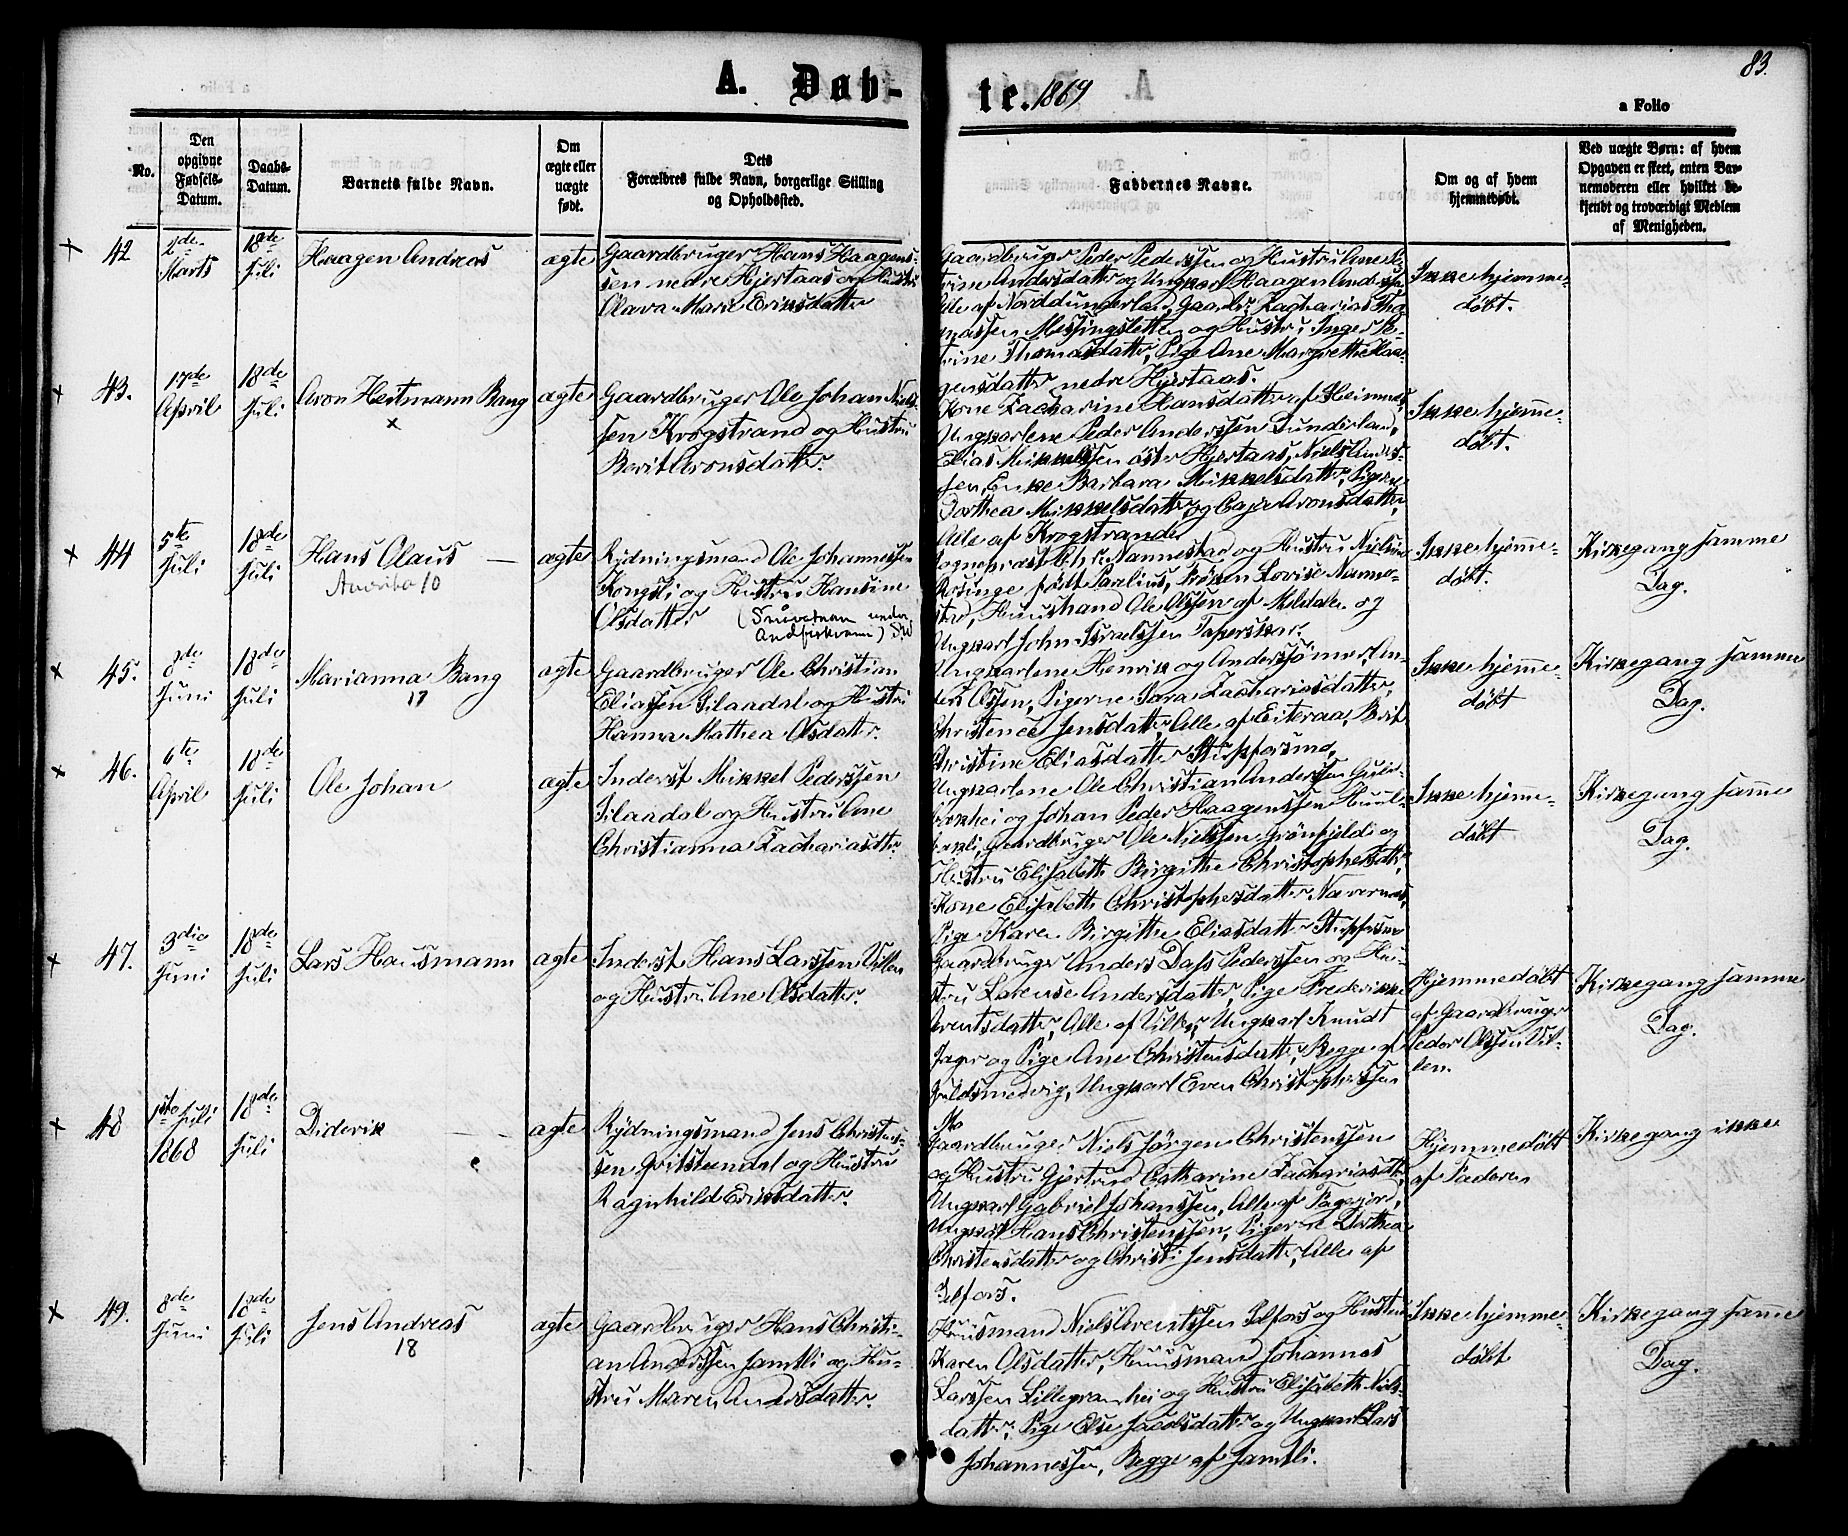 A. Døb-
te. 1869
83.
a Folio
No.
Den
opgivne
Fødsels-
Datum.
Daabs-
Datum.
Barnets fulde Navn.
Om
ægte eller
uægte
født.
Dets
Forældres fulde Navn, borgerlige Stilling
og Opholdssted.
Faddernes Navne.
Om og af hvem
hjemmedøbt.
Ved uægte Børn: af hvem
Opgaven er skeet, enten Bar-
nemoderen eller hvilket be-
kjendt og troværdigt Medlem
af Menigheden.
42
Marts
18de
Juli
Haagen Andreas
ægte
Gaardbruger Hans Haagens-
sen nedre Hjertaas og Hustru
Olava Marie Eriksdatter
Gaardbruger Peder Pederssen og Hustru Ane
trine Andersdatter og Ungkarl Haagen Anderssen
Alle af Norddunderland, Gaardbr. Zacharias Tho-
massen Messingsletten og Hustru Inger Pe-
trine Thomasdatter, Pige Ane Margrethe Haa-
gensdatter nedre Hjertaas.
Ikke hjemme-
døbt.
43.
17de
April
18de
Juli
Aron Heitmann Bang
x
ægte
Gaardbruger Ole Johan Niels-
sen Krogstrand og Hustru
Berit Aronsdatter.
Kone Zacharine Hansdatter af Heimnes,
Ungkarlene Peder Anderssen Dunderland,
Elias Mikkelssen østre Hjertaas, Niels Anders-
sen, Enke Barbara Mikkelsdatter, Pigerne
Dorthea Mikkelsdatter og Caja Aronsdatter,
Alle af Krogstrand
Ikke hjemme-
døbt.
44
5te
Juli
18de
Juli
Hans Olaus —
10
ægte
Rydningsmand Ole Johannessen
Kongsli og Hustru Hansine
Olsdatter
Sogneprest Chr. Nannestad og Hustru
født Parelius, Frøken Lovise Nanne-
stad, Huusmand Ole Olssen af og
Ungkarl John Israelssen
Ikke hjemme-
døbt.
Kirkegang samme
Dag.
45.
8de
Juni
18de
Juli
Marianna Bang
17
ægte
Gaardbruger Ole Christian
Eliassen og Hustru
Hanna Mathea Olsdatter.
Ungkarlene Henrik og Anders
Olssen, Pigerne Sara Zachariasdatter,
Jensdatter, Alle af Eiteraa, Berit
Christine Eliasdatter Stupforsmo.
Ikke hjemme-
døbt
Kirkegang samme
Dag.
46.
6te
April
18de
Juli
Ole Johan
ægte
Inderst Mikkel Pederssen
og Hustru Ane
Christianna Zachariasdtr.
Ungkarlene Ole Christian Anderssen
og Johan Peder Haagenssen
Gaardbruger Ole Nielssen Grønfjeld og
Hustru Elisabeth Birgitte Christophersdatter,
Kone Elisabeth Christophersdatter Nævernes,
Pige Karen Birgitte Eliasdatter Stupforsmo
Ikke hjemme-
døbt
Kirkegang samme
Dag.
47.
3die
Juni
18de
Juli
Lars Hausmann
ægte
Inderst Hans Larssen Villen
og Hustru Ane Olsdatter.
Gaardbruger Anders Dass Pederssen og Hu-
stru Larense Andersdatter, Pige Frederikke
Arentsdatter, Alle af Villen, Ungkarl Knudt
Jager og Pige Ane Christensdatter, Begge af
Guldsmedvig, Ungkarl Even Christopherssen
Mo
Hjemmedøbt
af Gaardbruger
Peder Olssen Vil-
len.
Kirkegang samme
Dag.
48
1ste Juli
1868
18de
Juli
Diderik
ægte
Rydningsmand Jens Christens-
sen og Hustru
Ragnhild Eriksdatter.
Gaardbruger Niels Jørgen Christenssen
og Hustru Gjertrud Catharine Zachariasdtr.,
Ungkarl Gabriel Johanssen, Alle af
Ungkarl Hans Christenssen, Pigerne Dorthea
Christensdatter og Christi Jensdatter, Alle af
Ilfors.
Hjemmedøbt
af Faderen
Kirkegang ikke
49.
8de
Juni
18de
Juli
Jens Andreas
18
ægte
Gaardbruger Hans Christi-
an Anderssen Jamtli og Hu-
stru Maren Andersdatter.
Huusmand Niels Arentssen Ilfors og Hustru
Karen Olsdatter, Huusmand Johannes
Larssen Lillegranhei og Hustru Elisabeth Niels-
datter, Pige Else Jacobsdatter og Ungkarl Lars
Johannessen, Begge af Jamtli.
Ikke hjemme-
døbt
Kirkegang samme
Dag.